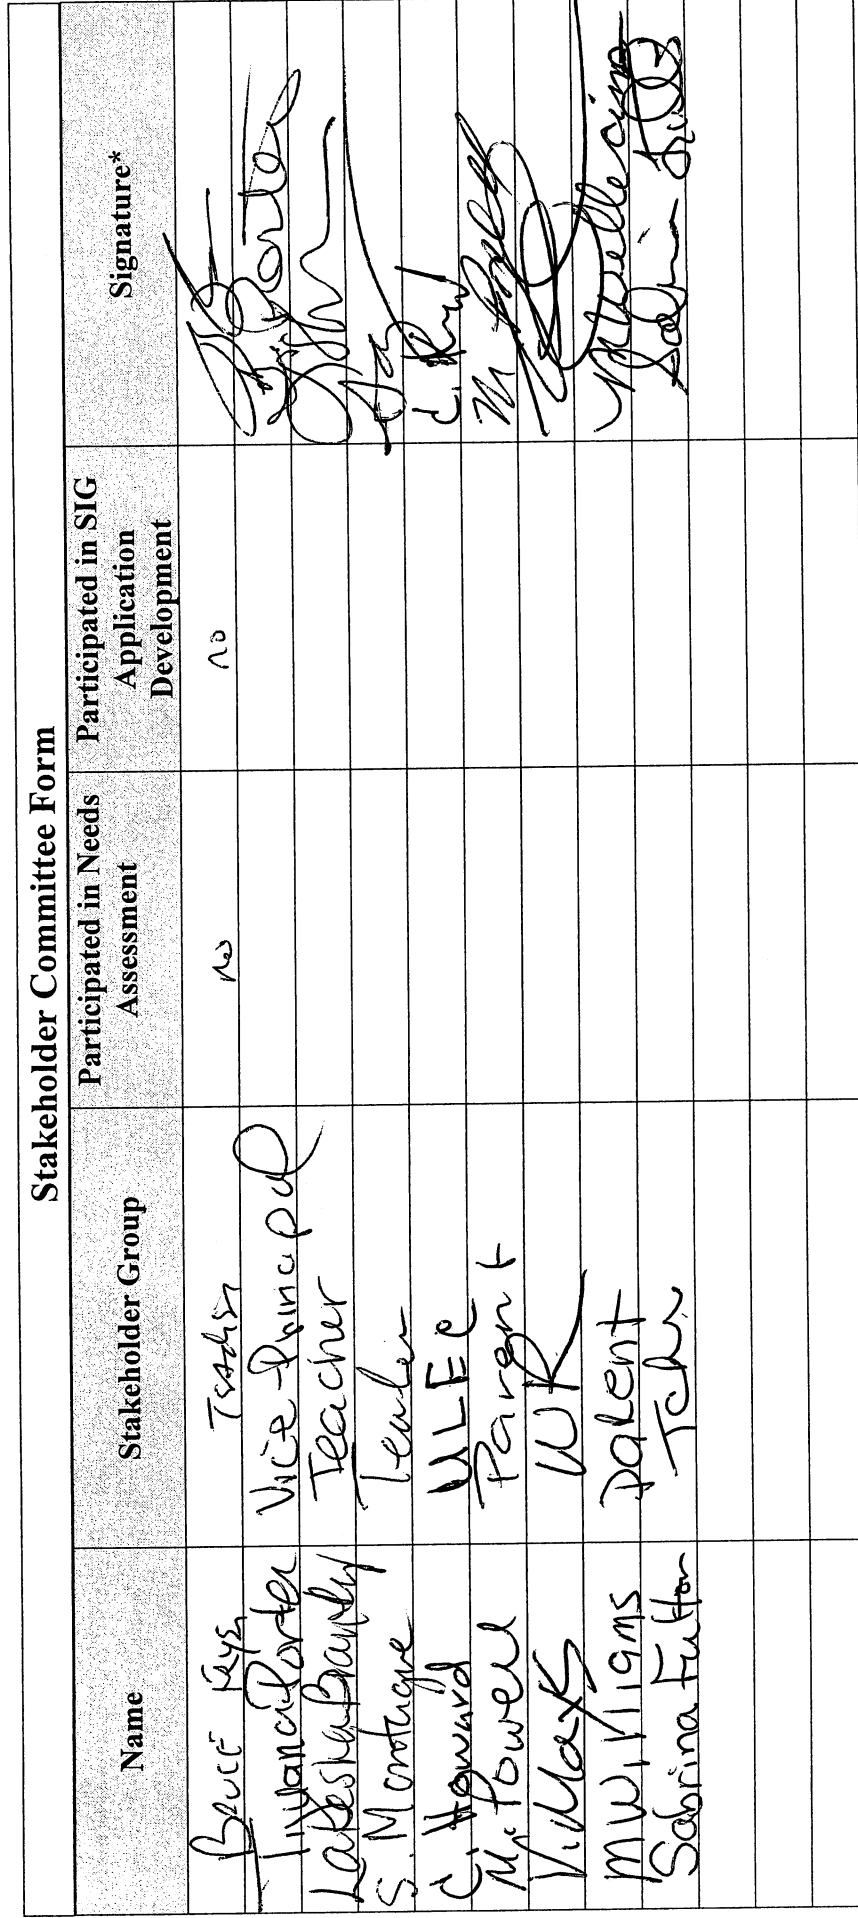 Stakeholder Committee Form
Name Stakeholder Group Participated in Needs Assessment Participated in SIG Application Development Signature*
Bruce Keys Teacher no no
Tiyana Porter Vice Principal Porter
Lakesha Brantly Teacher
S. Montague Teacher
C. Howard ULEC
M. Powell Parent
V. Mays WR
M Williams parent
Sabrina Fulton Tchr